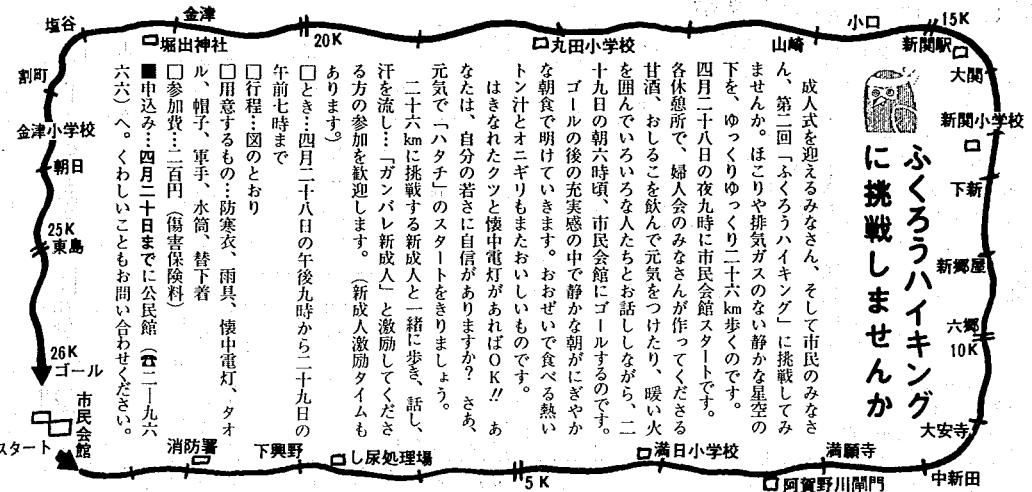 ふくろうハイキング
に挑戦しませんか
成人式を迎えるみなさん、そして市民のみなさ
ん、第二回「ふくろうハイキング」に挑戦してみ
ませんか。ほこりや排気ガスのない静かな星空の
下を、ゆっくりゆっくり二十六km歩くのです。
四月二十八日の夜九時に市民会館スタートです。
各休憩所で、婦人会のみなさんが作ってくださる
甘酒、おしるこを飲んで元気をつけたり、暖い火
を囲んでいろいろな人たちとお話ししながら、二
十九日の朝六時頃、市民会館にゴールするのです。
ゴールの後の充実感の中で静かな朝がにぎやか
な朝食で明けていきます。おおぜいで食べる熱い
トン汁とオニギリもまたおいしいものです。
はきなれたクツと懐中電灯があればOK!! あ
なたは、自分の若さに自信がありますか? さあ、
元気で「ハタチ」のスタートをきりましょう。
二十六kmに挑戦する新成人と一緒に歩き、話し、
汗を流し…「ガンバレ新成人」と激励してくださ
る方の参加を歓迎します。(新成人激励タイムも
あります。)
□とき…四月二十八日の午後九時から二十九日の
午前七時まで
□行程…図のとおり
□用意するもの…防寒衣、雨具、懐中電灯、タオ
ル、帽子、軍手、水筒、替下着
□参加費…二百円(傷害保険料)
■申込み…四月二十日までに公民館(☎二―九六
六六)へ。くわしいこともお問い合わせください。
スタート
市民会館
消防署
下興野
し尿処理場
5K
満日小学校
阿賀野川閘門
満願寺
中新田
大安寺
10K
六郷
新郷屋
下新
新関小学校
大関
新関駅
15K
小口
山崎
丸田小学校
20K
堀出神社
金津
塩谷
割町
金津小学校
朝日
25K
東島
26K
ゴール